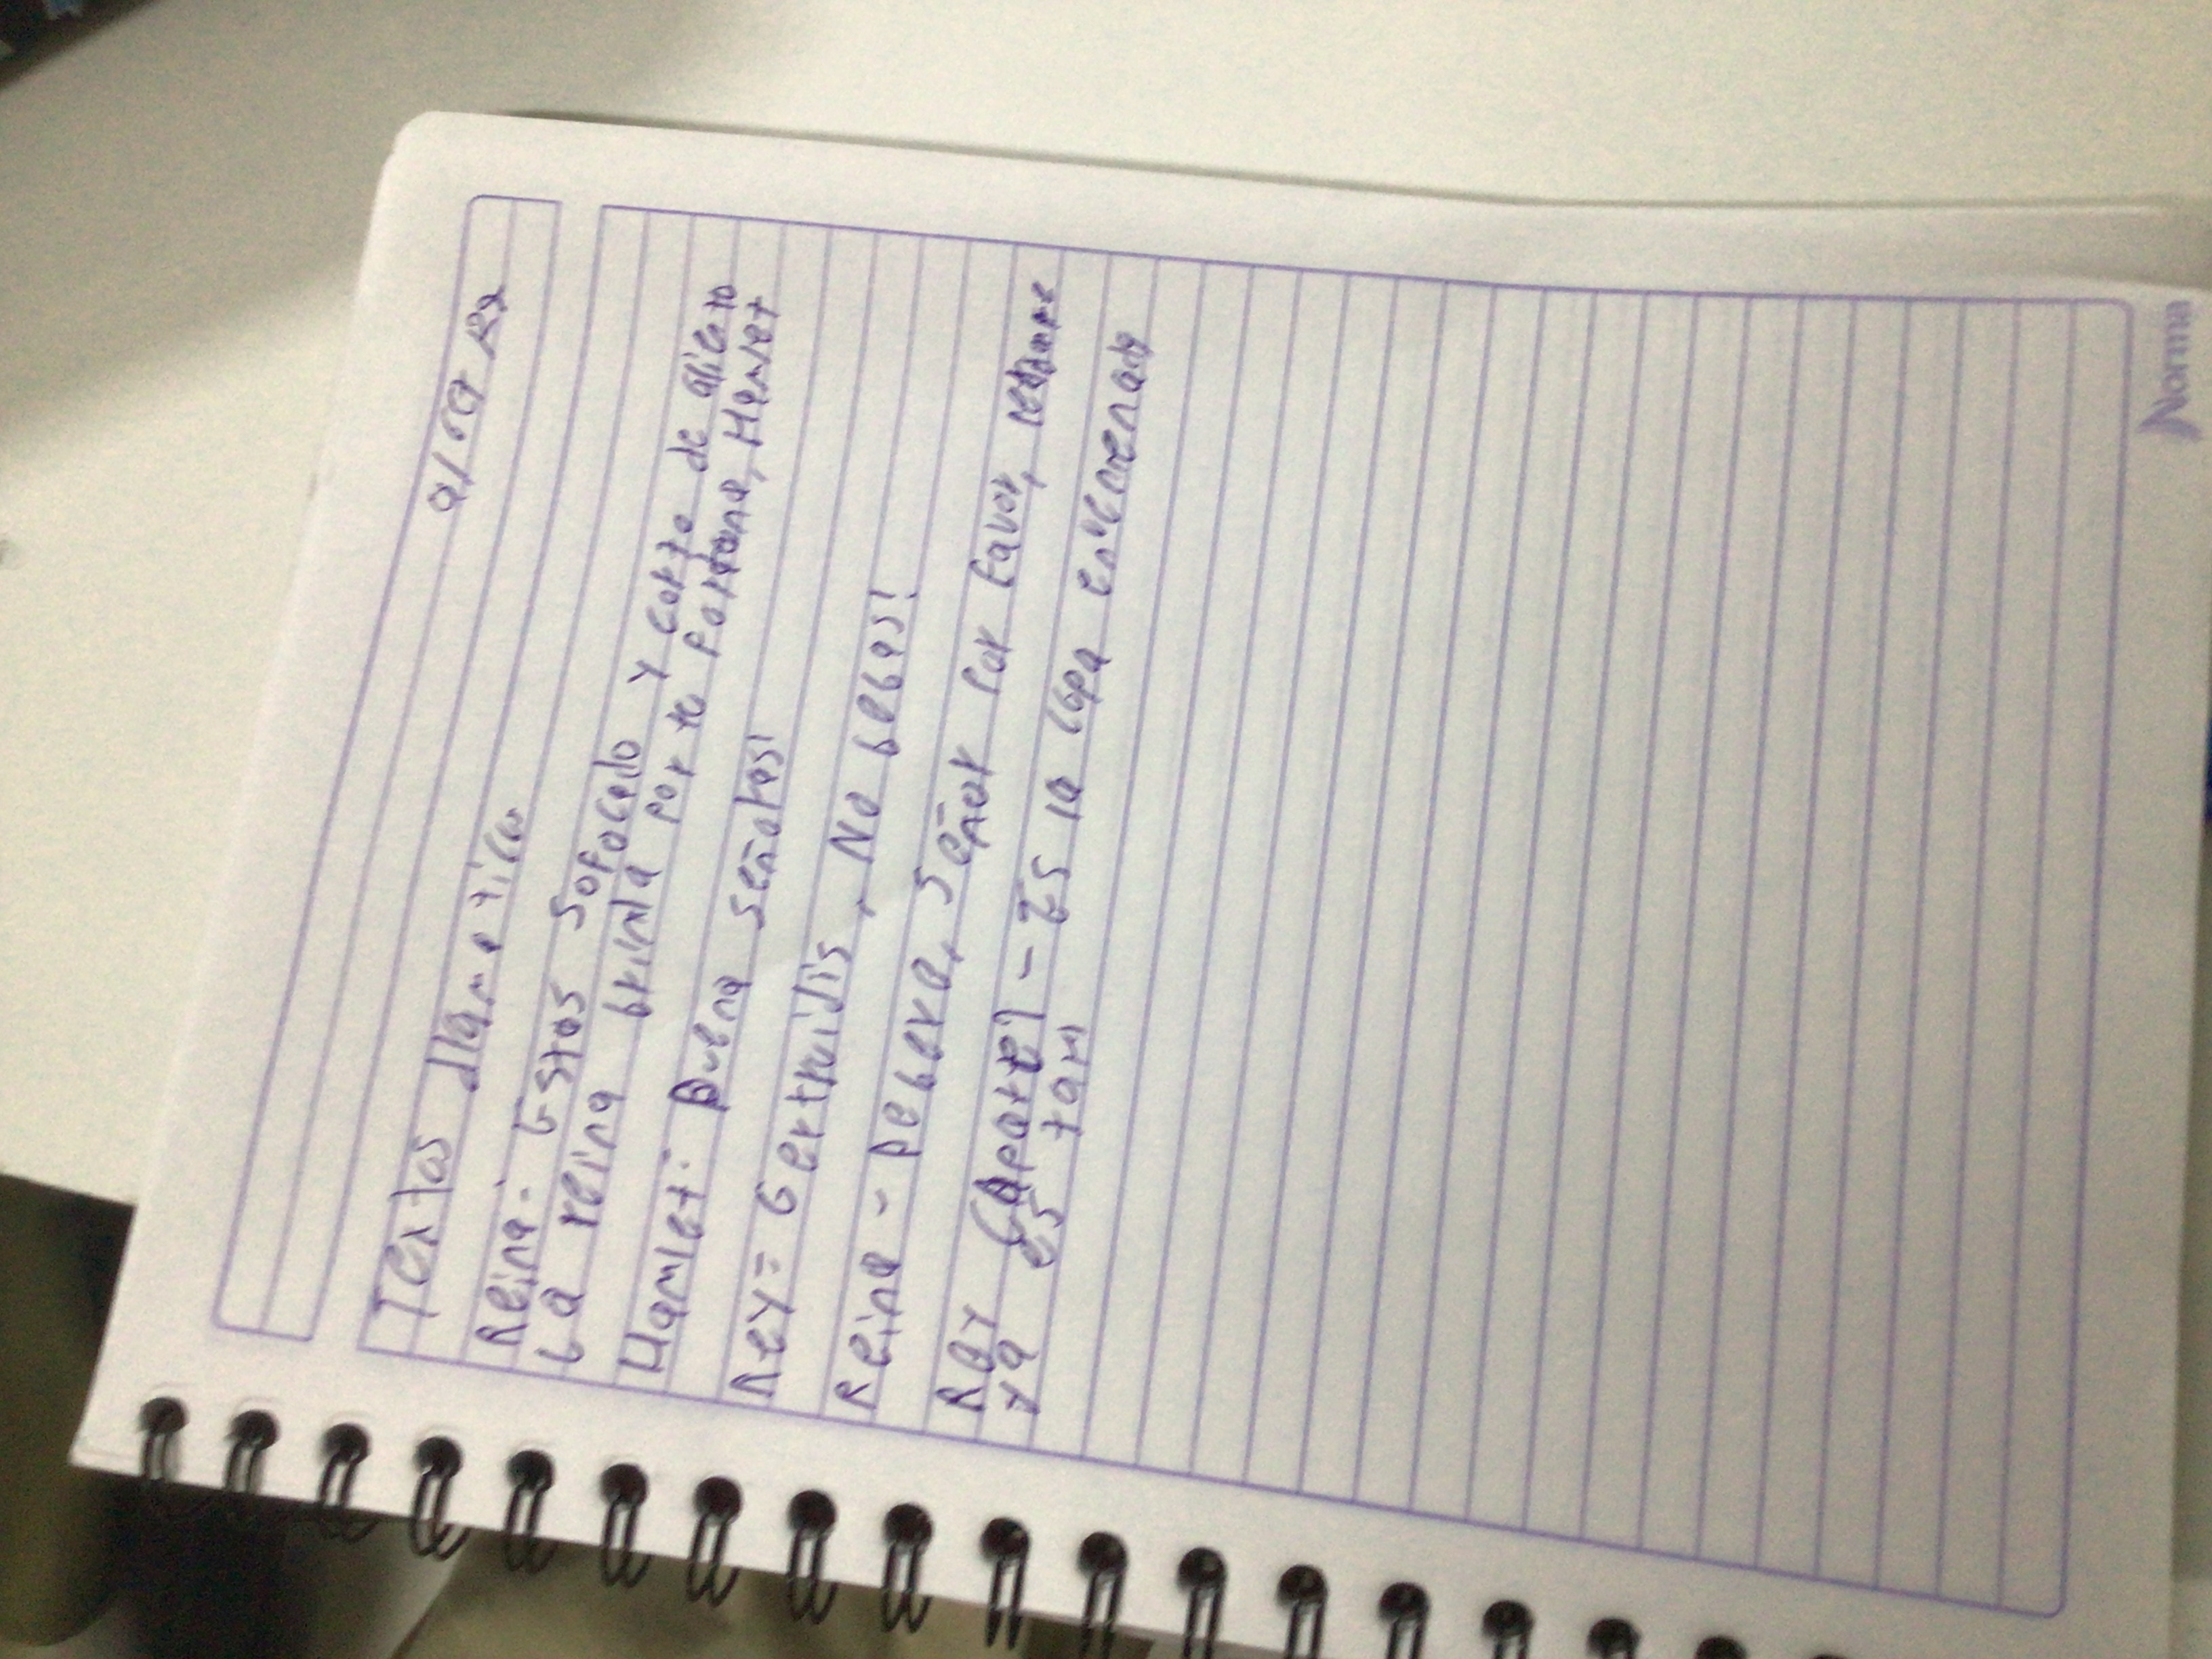 Textos dramatico
Reina: Estas sofocado y corto de aliento
La reina brinda por tu fortuna, Hamlet
Hamlet: Buena señoras!
Rey= Gertrudis, No bebas!
Reina - Beberé, Señor Por favor,
Rey (Aparte) - Es la copa envenenada
ya es tarn
Norma